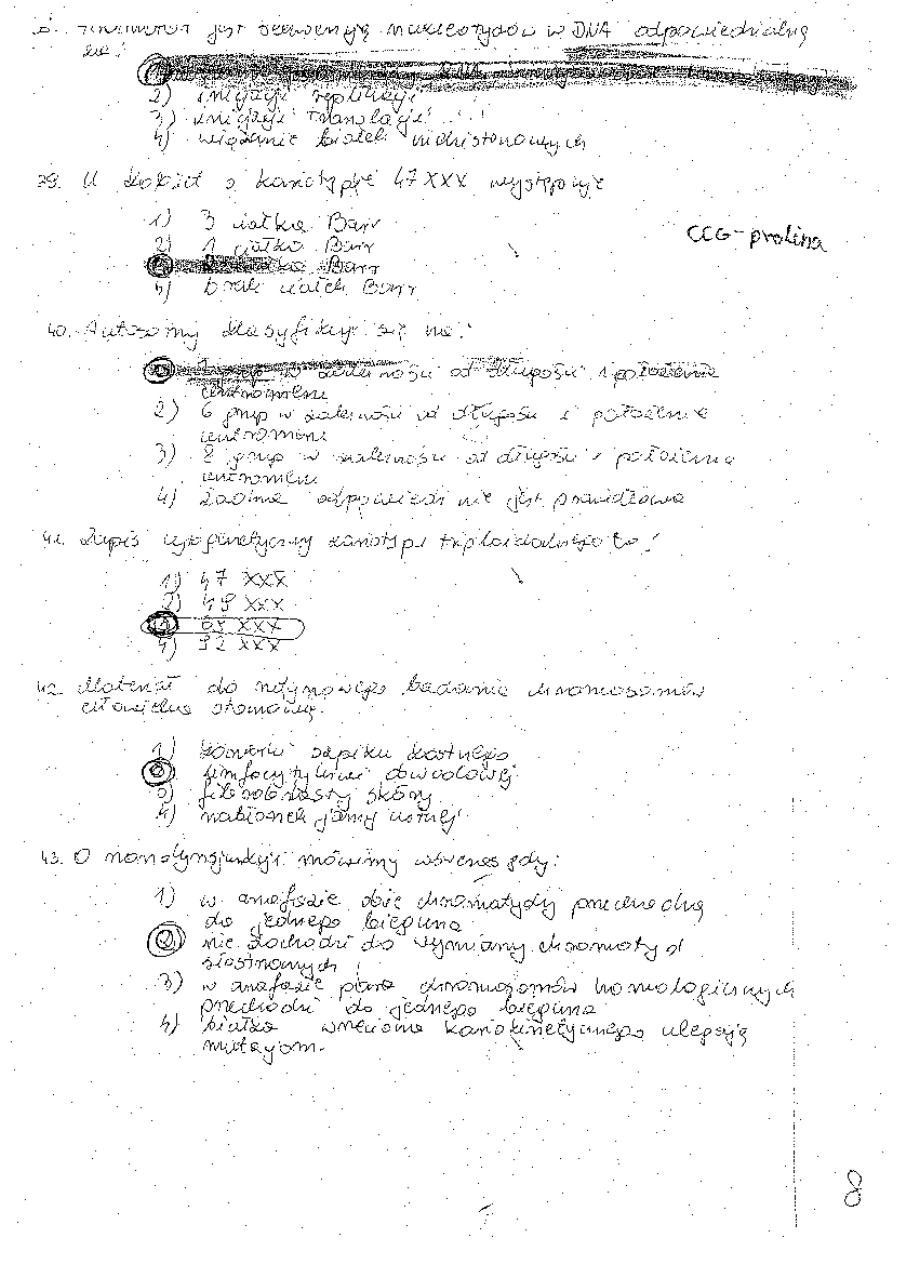 jest sekwencją nukleotydów w DNA odpowiedzialną
za:
2) inicjację replikacji
3) inicjację translacji
4) wiązanie białek niehistonowych
39. U kobiet z kariotypie 47 XXX występuje
1) 3 ciałka Barr
2) 1 ciałko Barr
ciałka Barr
4) brak ciałek Barr
CCG - prolina
40. Autosomy klasyfikuje się na:
w zależności od długości i położenia
centromeru
2) 6 grup w zależności od długości i położenie
centromeru
3) 8 grup w zależności od długości i położenia
centromeru
4) żadna odpowiedzi nie jest prawidłowa
41. Zapis cytogenetyczny kariotypu triploidalnego to:
1) 47 XXX
2) 49 XXX
3) 69 XXX
4) 92 XXX
42. Materiał do rutynowego badania chromosomów
człowieka stanowią:
1) komórki szpiku kostnego
2) limfocyty krwi obwodowej
3) fibroblasty skóry
4) nabłonek jamy ustnej
43. O nondysjunkcji mówimy wówczas gdy:
1) w anafazie obie chromatydy przechodzą
do jednego bieguna
2) nie dochodzi do wymiany chromatyd
siostrzanych
3) w anafazie para chromosomów homologicznych
przechodzi do jednego bieguna
4) białka wrzeciona kariokinetycznego ulegają
mutacjom.
8